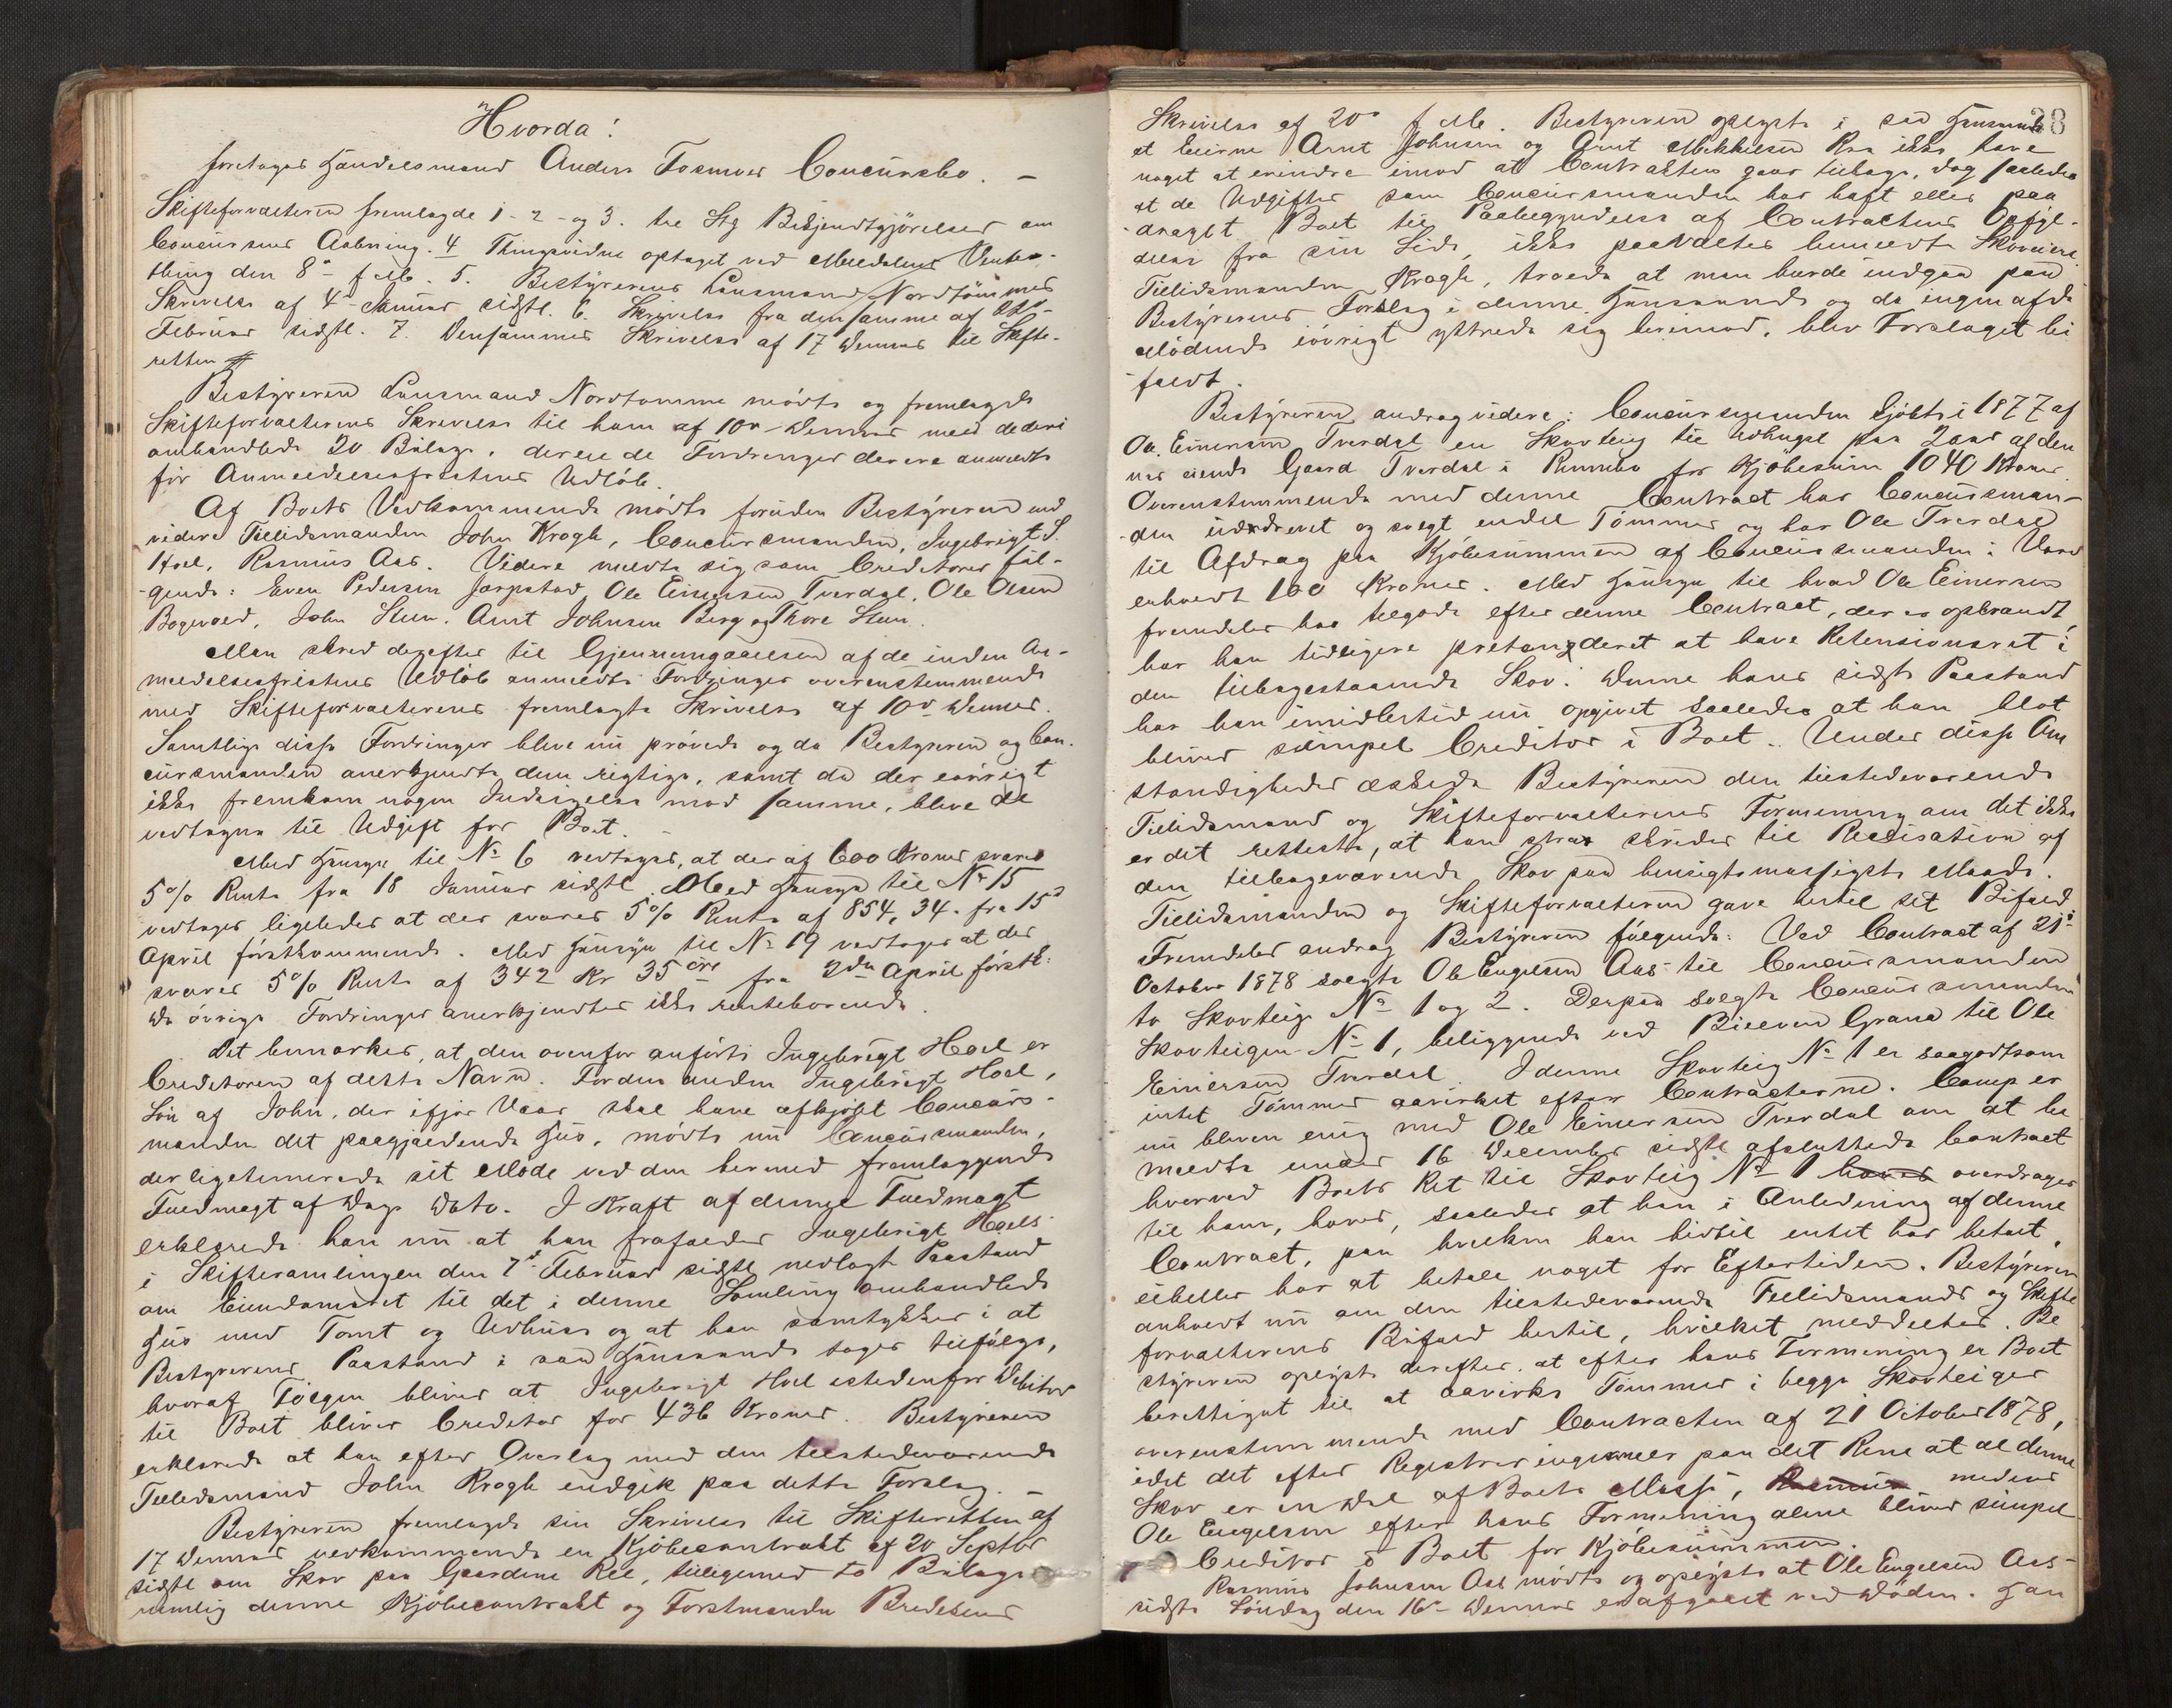 Hvorda:
foretoges Handelsmand Anders Fosmoes Concursbo. –
Skifteforvalteren fremlagde 1 - 2 - og 3. tre Stg Bekjendtgjörelser om
Concursens Aabning. 4 Thingsvidne optaget ved Meldalens Vinter-
thing den 8de f. M. 5. Bestyrerens Lensmand Nordtömmes
Skrivelse af 4de Januar sidstl. 6. Skrivelse fra densamme af
Februar sidstl. 7. Densammes Skrivelse af 17 dennes til Skifte-
retten
Bestyreren Lensmand Nordtömme mödte og fremlagde
Skifteforvalterens Skrivelse til ham af 10de dennes med de deri
omhandlede 20 Bilage, derere de Fordringer der ere anmeldte
för Anmeldelsesfristens Udlöb.
Af Boets Vedkommende mödte foruden Bestyreren end
videre Tillidsmanden John Krogh, Concursmanden, Ingebrigt S.
Hoel, Rasmus Aas. Videre meldte sig som Creditorer föl-
gende: Even Pedersen Jærpstad, Ole Einersen Tverdal, Ole Olsen
Bogevold, John Steen. Arnt Johnsen Berg og Thore Steen.
Man skred derefter til Gjennemgaaelsen af de inden An-
meldelsesfristens Udlöb anmeldte Fordringer overenstemmende
med Skifteforvalterens fremlagte Skrivelse af 10de dennes.
Samtlige disse Fordringer bleve nu prövede og da Bestyreren og Con-
cursmanden anerkjendte dem rigtige, samt da der iövrigt
ikke fremkom nogen Indsigelse mod samme, bleve de
vedtagne til Udgift for Boet. –
Med Hensyn til No 6 vedtages, at der af 600 Kroner svares
5% Rente fra 18 Januar sidstl. Med Hensyn til No 15
vedtages ligeledes at der svares 5% Rente af 854, 34. fra 15de
April förstkommende. Med Hensyn til No 19 vedtages at der
svares 5% Rente af 342 Kr 35 öre fra 2den April förstk:
De övrige Fordringer anerkjendtes ikke rentebærende.
Det bemærkes, at den ovenfor anförte Ingebrigt Hoel er
Creditoren af dette Navn. For den anden Ingebrigt Hoel,
Sön af John, der ifjor Vaar skal have afkjöbt Concurs-
manden det paagjældende Hus, mödte nu Concursmanden,
der legitimerede sit Möde ved den hermed fremlæggende
Fuldmagt af Dags Dato. I Kraft af denne Fuldmagt
erklærede han nu at han frafalder Ingebrigt Hoels
i Skiftesamlingen den 7de Februar sidstl nedlagte Paastand
om Eiendomsret til det i denne Samling omhandlede
Hus med Tomt og Udhuse og at han samtykker i at
Bestyrerens Paastand i saa Henseende tages tilfölge,
hvoraf Fölgen bliver at Ingebrigt Hoel istedenfor Debitor
til Boet bliver Creditor for 436 Kroner. Bestyreren
erklærede at han efter Overlæg med den tilstedeværende
Tillidsmand John Krogh indgik paa dette Forslag. –
Bestyreren fremlagde sin Skrivelse til Skifteretten af
17 dennes vedkommende en Kjöbecontrakt af 20 Septbr
sidstl om Skov paa Gaardene Ree, tilligemed to Bilage
nemlig denne Kjöbecontrakt og Forstmanden Bredesens
38
Skrivelse af 20de f. M. Bestyreren oplyste i saa Henseende
at Eierne Arnt Johnsen og Arnt Mikkelsen Ree ikke have
noget at erindre imod at Contrakten gaar tilbage, dog saaledes
at de Udgifter som Concursmanden har haft eller paa
draget Boet til Paabegyndelse af Contractens Opfyl-
delse fra sin Side, ikke paavæltes bemeldte Skoveiere.
Tillidsmanden Krogh, troede at man burde indgaa paa
Bestyrerens Forslag i denne Henseende og da ingen af de
Mödende iövrigt yttrede sig herimod, blev Forslaget bi
faldt.
Bestyreren androg videre: Concursmanden kjöbte i 1877 af
Ole Einersen Tverdal en Skovteig til Udhugst paa 2 aar af den
ham eiende Gaard Tverdal i Rennebo for Kjöbesum 1040 Kroner.
Overenstemmende med denne Contract har Concursman-
den uddrevet og solgt endel Tömmer og har Ole Tverdal
til Afdrag paa Kjöbesummen af Concursmanden i Vaar
erholdt 160 Kroner. Med Hensyn til hvad Ole Einersen
fremdeles har tilgode efter denne Contract, der er oplrandt,
har han tidligere prætenderet at have Retensionsret i
den tilbagestaaende Skov. Denne hans sidste Paastand
har han imidlertid nu opgivet saaledes at han blot
bliver simpel Creditor i Boet. Under disse Om
stændigheder æskede Bestyreren den tilstedeværende
Tillidsmand og Skifteforvalterens Formening om det ikke
er det retteste, at han strax skrider til Realisation af
den tilbageværende Skov paa hensigtsmæssigste Maade.
Tillidsmanden og Skifteforvalteren gave hertil sit Bifald.
Fremdeles androg Bestyreren fölgende: Ved Contract af 21de
October 1878 solgte Ole Engelsen Aas til Concursmanden
to Skovteige No 1 og 2. Derpaa solgte Concursmanden
Skovteigen No 1, beliggende ved Bielven Grana til Ole
Einersen Tverdal. I denne Skovteig No 1 er saagodtsom
intet Tömmer aavirket efter Contracterne. Comp. er
nu bleven enig med Ole Einersen Tverdal om at be
meldte under 16 December sidstl afsluttede Contract
hvorved Boets Ret til Skovteig No 1 overdrages
til ham, hæves, saaledes at han i Anledning af denne
Contract, paa hvilken han hidtil intet har betalt,
eiheller har at betale noget for Eftertiden. Bestyreren
anholdt nu om den tilstedeværende Tillidsmands og Skifte
forvalterens Bifald hertil, hvilket meddeltes. Be
styreren oplyste derefter, at efter hans Formening er Boet
berettiget til at aavirke Tömmer i begge Skovteiger
overenstemmende med Contracten af 21 October 1878,
idet det efter Registreringen er paa det Rene at al denne
Skov er en Del af Boets Masse, medens
Ole Engelsen efter hans Formening alene bliver simpel
Creditor i Boet for Kjöbesummen.
Rasmus Johnsen Aas mödte og oplyste at Ole Engelsen Aas
sidste Söndag den 16de dennes er afgaaet ved Döden. Han